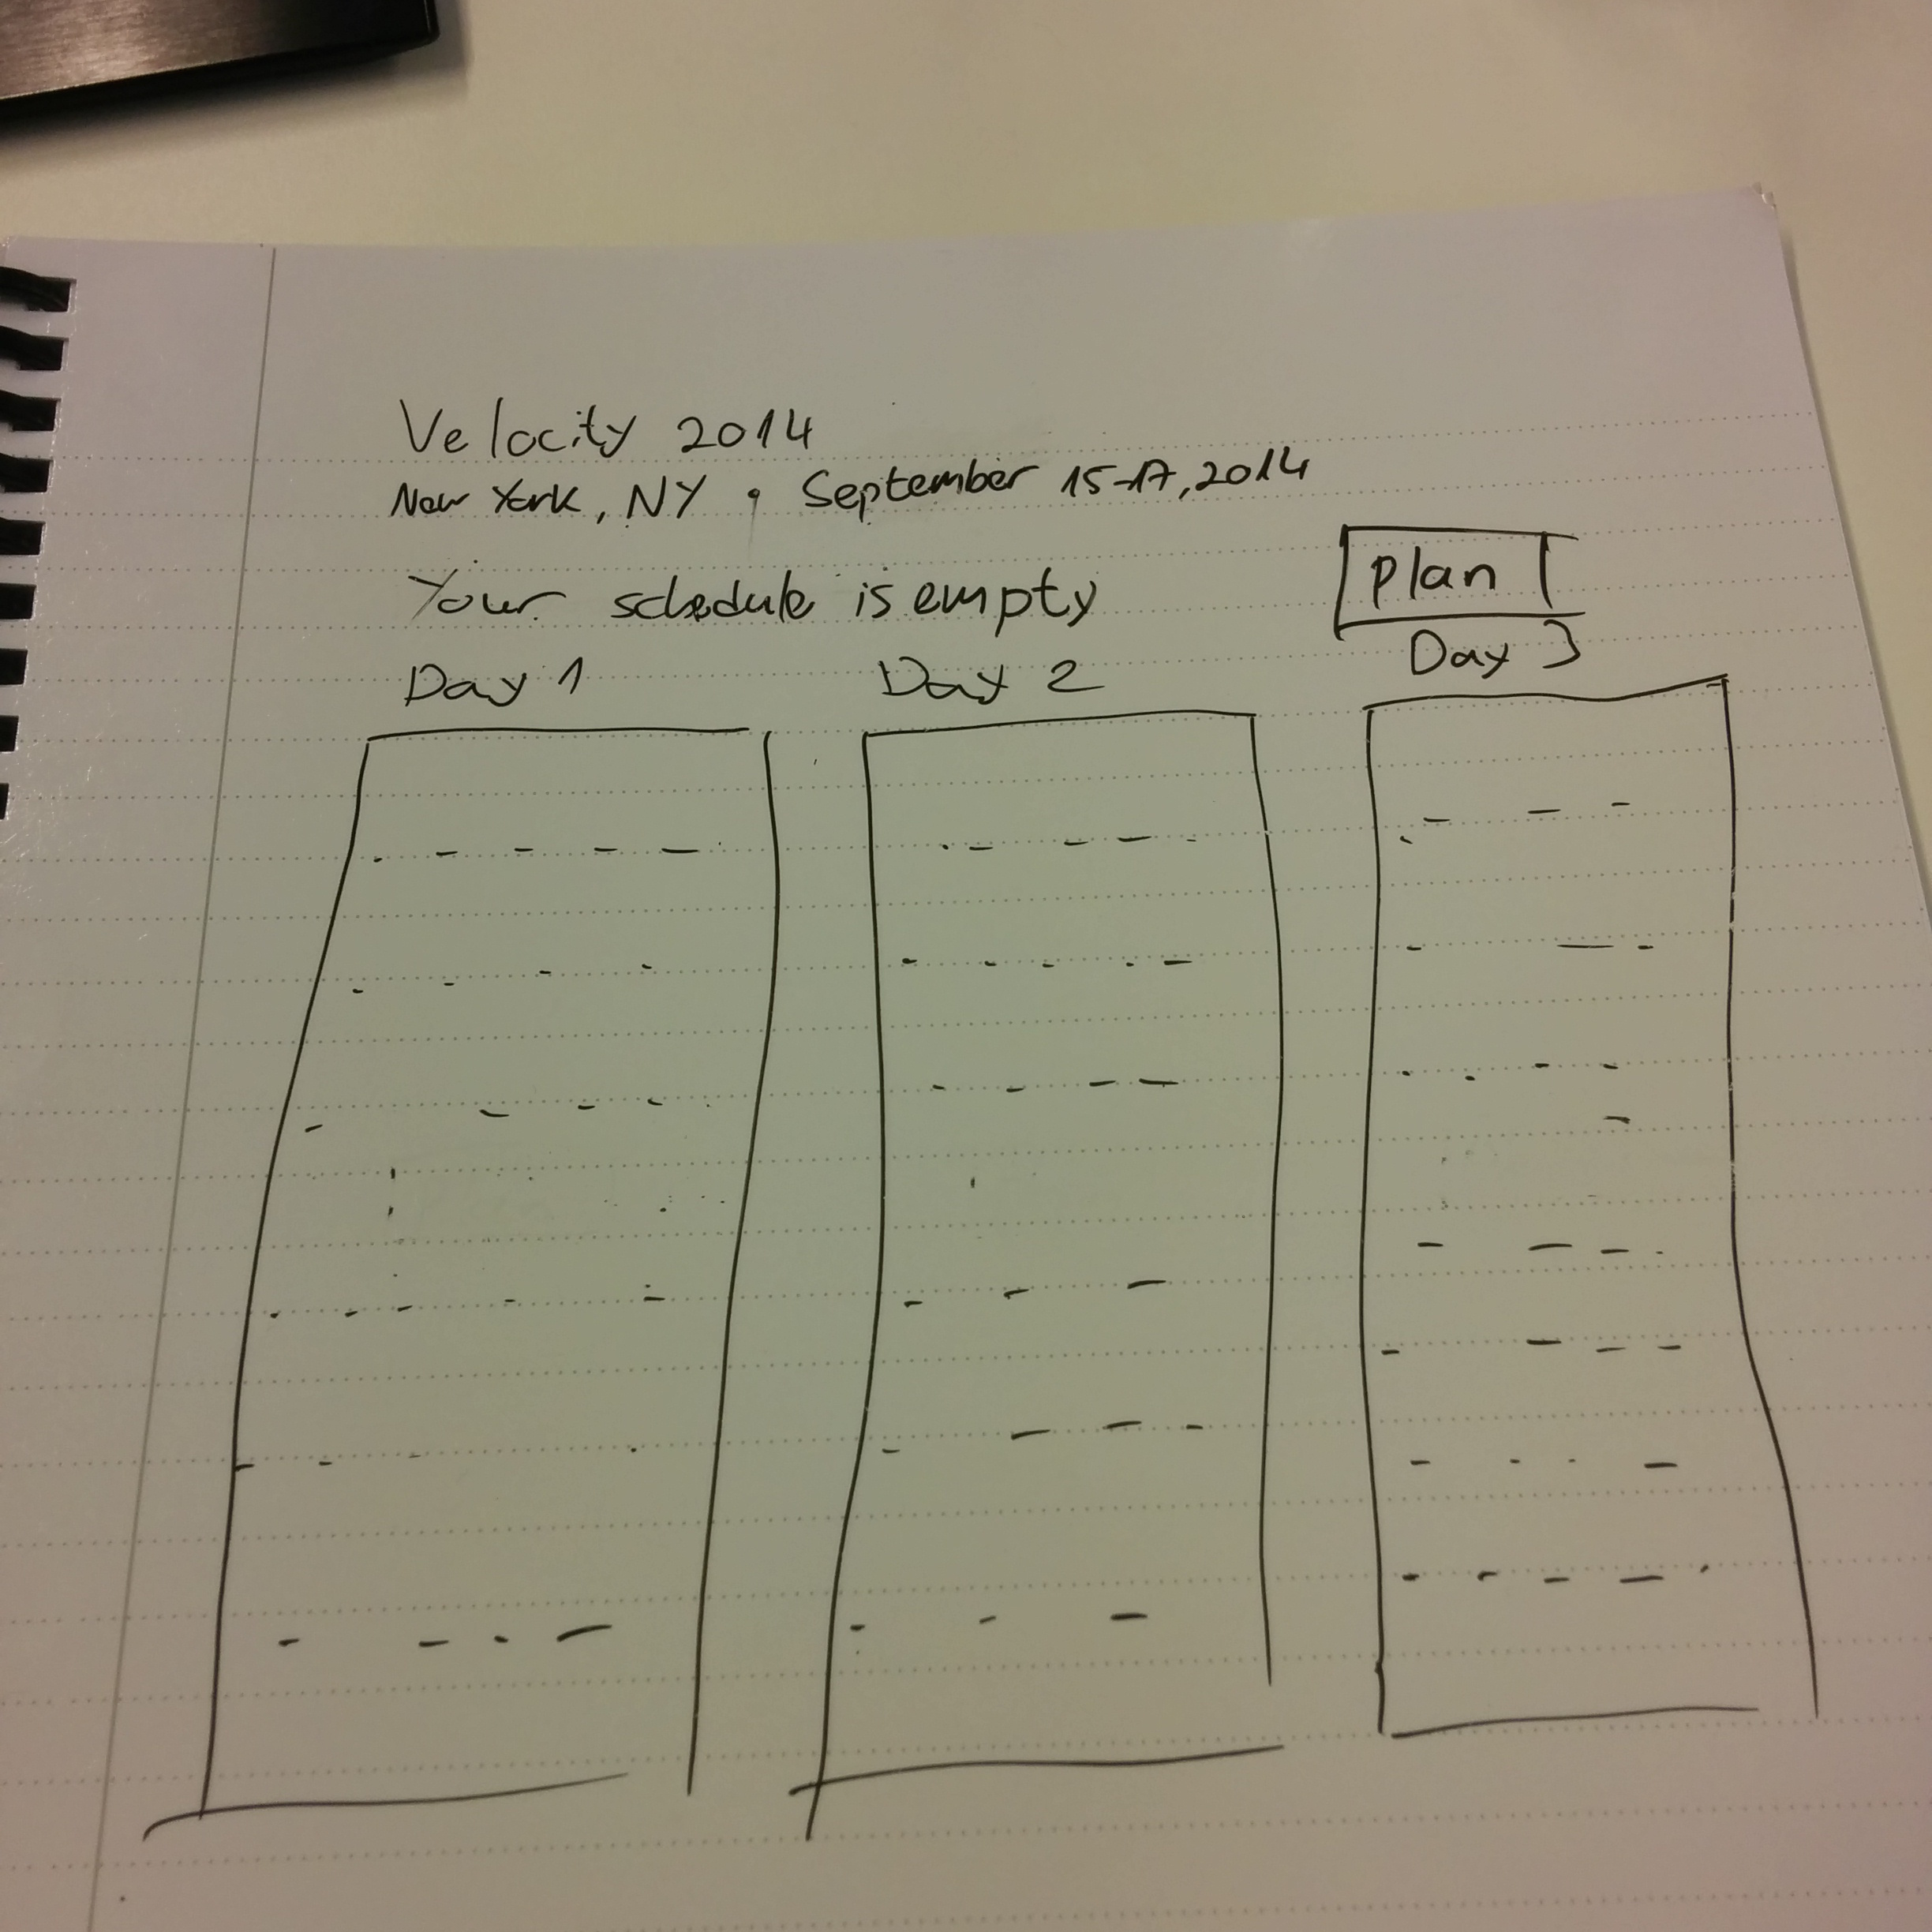 Velocity 2014
New York, NY • September 15-17, 2014
Your schedule is empty
plan
Day 1
Day 2
Day 3